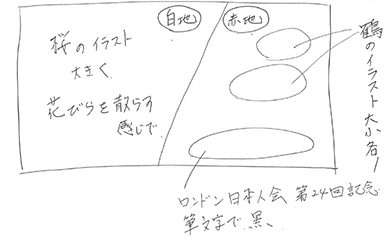 白地
赤地
桜のイラスト
大きく
花びらを散らす
感じで
鶴のイラスト 大小各1
ロンドン日本人会 第24回記念
筆文字で 黒、